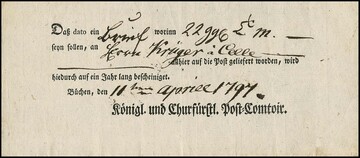 Daß dato ein Brief worinn 22 gg
seyn sollen, an Herrn Krüger à Celle
allhier auf die Post geliefert worden, wird
hiedurch auf ein Jahr lang bescheiniget.
Büchen, den 11ten Aprill 1797.
Königl. und Churfürstl. Post-Comtoir.